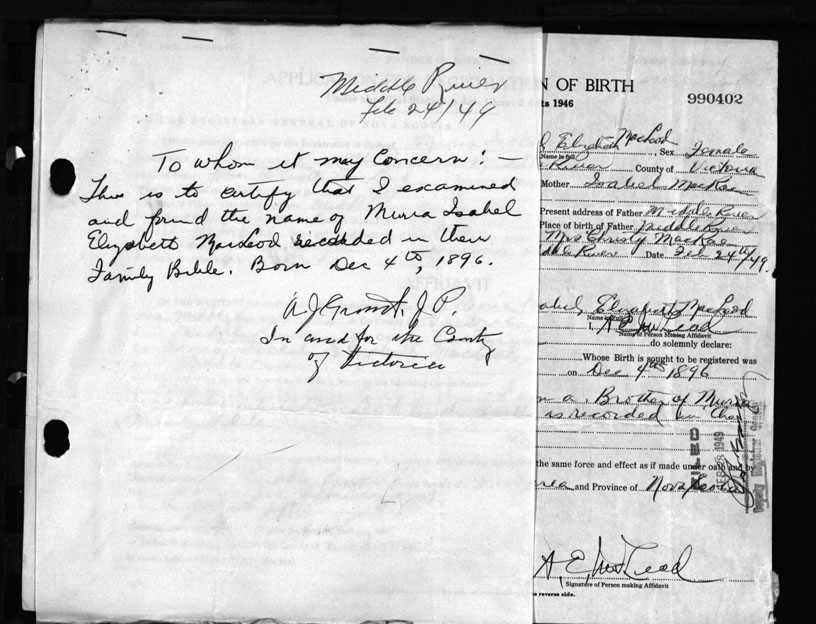 Middle River
Feb 24/49
To whom it may Concern: —
This is to certify that I examined
and found the name of Murra Isabel
Elizabeth MacLeod recorded in their
Family Bible. Born Dec 4th, 1896.
A J Grant. J P.
In and for the County
of Victoria
N OF BIRTH
ts 1946
990402
Elizabeth MacLeod, Sex Female
Name in full
River County of Victoria
Mother Isabel MacRae
Present address of Father Middle River
Place of birth of Father Middle River
Mrs Christy MacRae
River Date Feb 24th/49.
abel Elizabeth MacLeod
Name in full
I, A E McLeod
Name of Person Making Affidavit
do solemnly declare:
Whose Birth is sought to be registered was
on Dec 4th 1896
m a Brother of Murra
is recorded in the
the same force and effect as if made under oath and by
and Province of Nova Scotia
FILED
FEB 28 1949
Deputy Registrar General
A, E, McLeod
Signature of Person making Affidavit
reverse side.